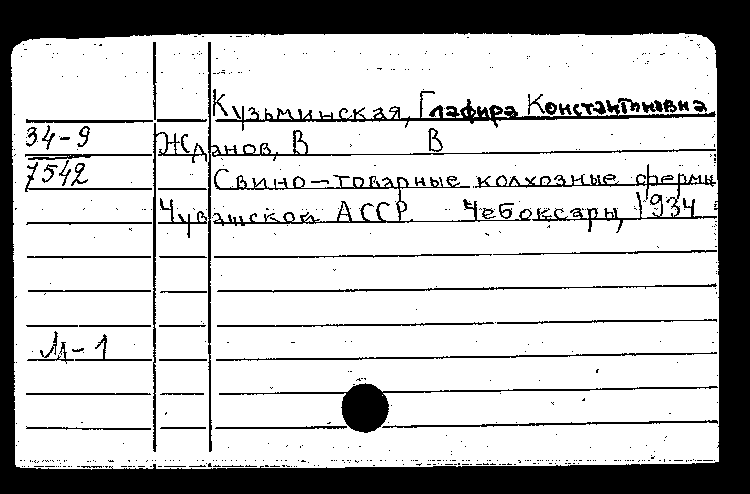 Кузьминская, Глафира Константиновна
34-9 Жданов, В В
7542 Свино-товарные колхозные фермы
Чувашской АССР. Чебоксары, 1934
М-1